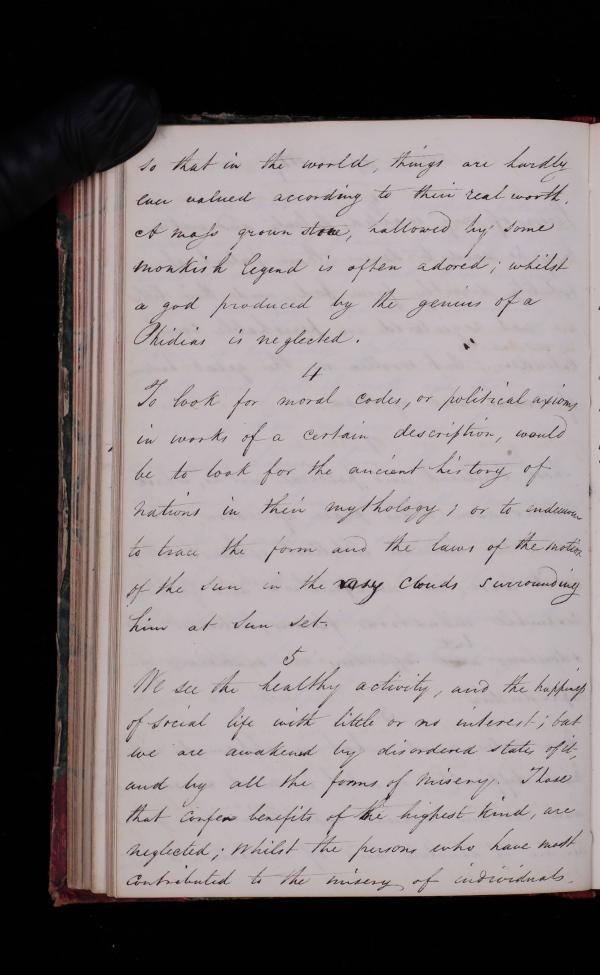 so that in the world, things are hardly
ever valued according to their real worth.
A moss grown stone, hallowed by some
monkish legend is often adored; whilst
a god produced by the genius of a
Phidias is neglected.
4
To look for moral codes, or political axioms
in works of a certain description, would
be to look for the ancient history of
nations in their mythology; or to endeavour
to trace the form and the laws of the motion
of the sun in the rosy clouds surrounding
him at sun set.
5
We see the healthy activity, and the happiness
of social life with little or no interest; but
we are awakened by disordered states of it,
and by all the forms of misery. Those
that confer benefits of the highest kind, are
neglected; whilst the persons who have most
contributed to the misery of individuals.